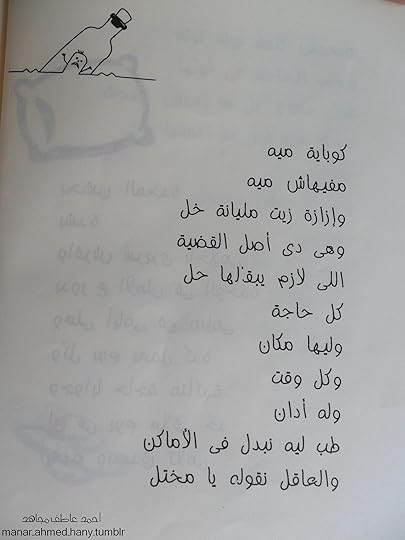 كوباية ميه
مفيهاش ميه
وإزازة زيت مليانة خل
وهى دى أصل القضية
اللى لازم يبقلها حل
كل حاجة
وليها مكان
وكل وقت
وله أدان
طب ليه نبدل فى الأماكن
والعاقل نقوله يا مختل
احمد عاطف مجاهد
manar.ahmed.hany.tumblr